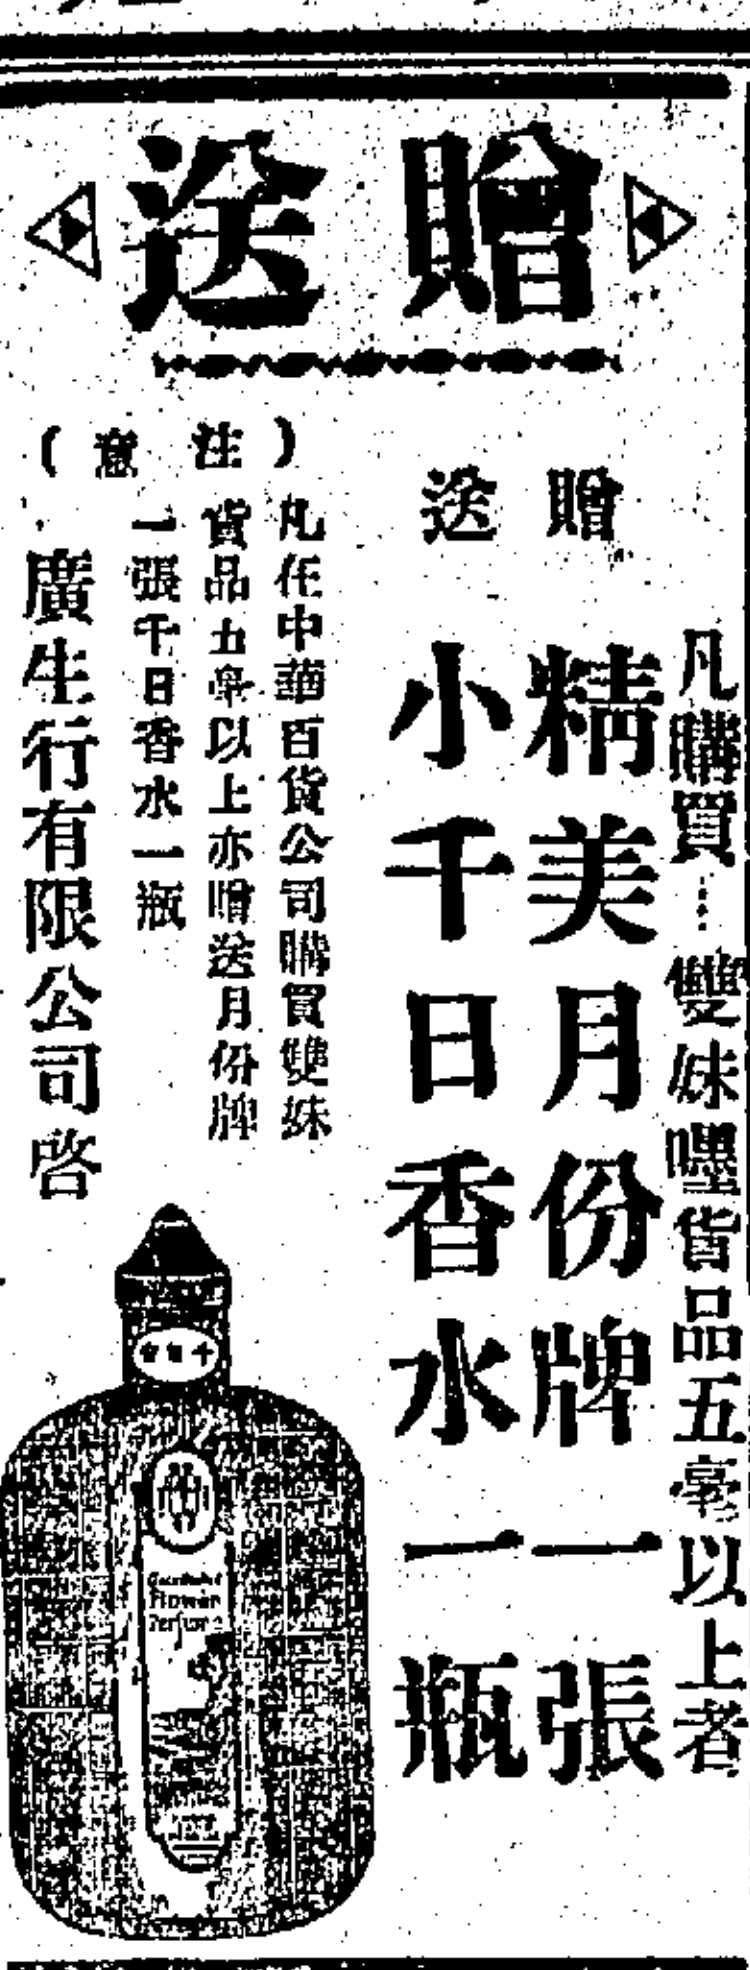 贈送
凡購買⋯⋯雙妹嚜貨品五毫以上者
贈送
精美月份牌一張
小千日香水一瓶
（注意）
凡在中華百貨公司購買雙妹
貨品五毫以上亦贈送月份牌
一張千日香水一瓶
廣生行有限公司啓
千日香
Flower